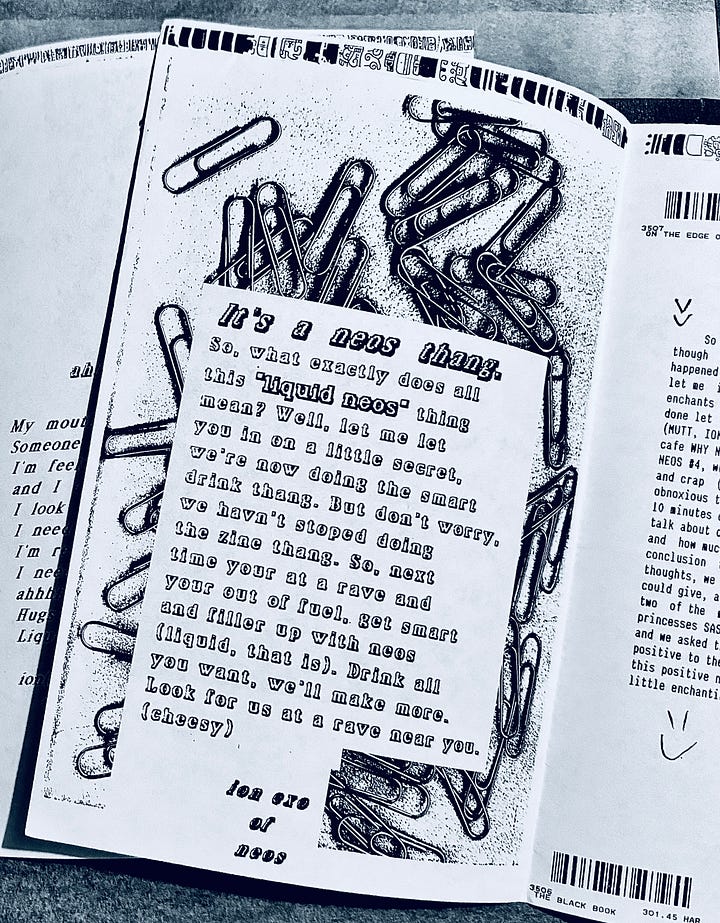 ah
My mout
Someone
I'm fee
and I
I look
I need
I'm r
I nee
ahhh
Hugs
Liq
ion
It's a neos thang.
So, what exactly does all
this "liquid neos" thing
mean? Well, let me let
you in on a little secret,
we're now doing the smart
drink thang. But don't worry,
we havn't stoped doing
the zine thang. So, next
time your at a rave and
your out of fuel, get smart
and filler up with neos
(liquid, that is). Drink all
you want, we'll make more.
Look for us at a rave near you.
(cheesy)
ion exo
of
neos
3507
ON THE EDGE O
So
though
happened
let me i
enchants
done let
(MUTT, ION
cafe WHY N
NEOS #4, w
and crap (
obnoxious t
10 minutes o
talk about o
and how muc
conclusion
thoughts, we
could give, a
two of the
princesses SAS
and we asked t
positive to the
this positive n
little enchanti
3506
THE BLACK BOOK 301.45 HAR